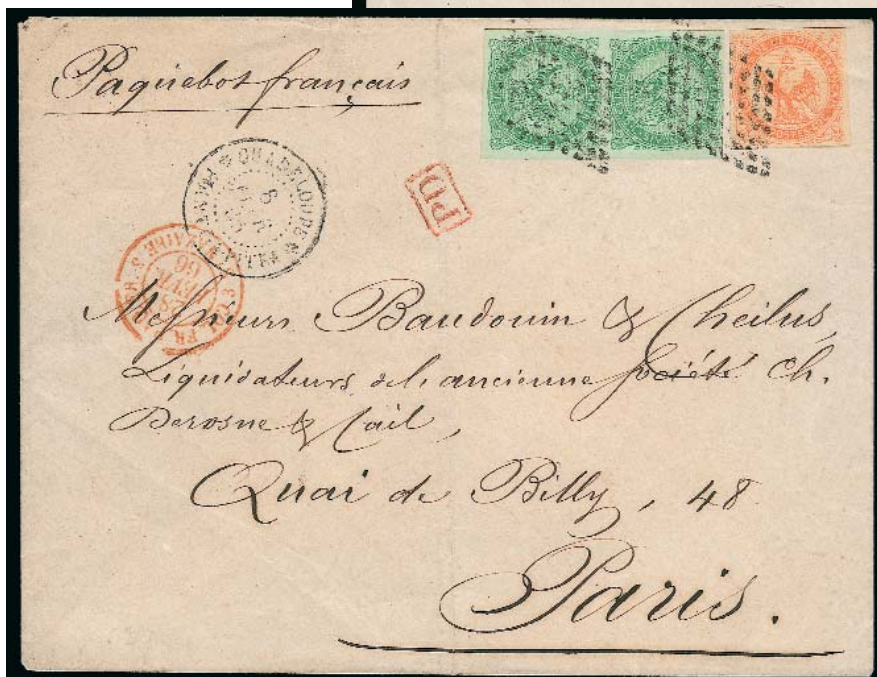 Paquebot français
PD
GUADELOUPE
66
Messieurs Baudouin & Cheilus,
Liquidateurs de l'ancienne Société Ch.
Derosne & Cail,
Quai de Billy, 48
Paris.